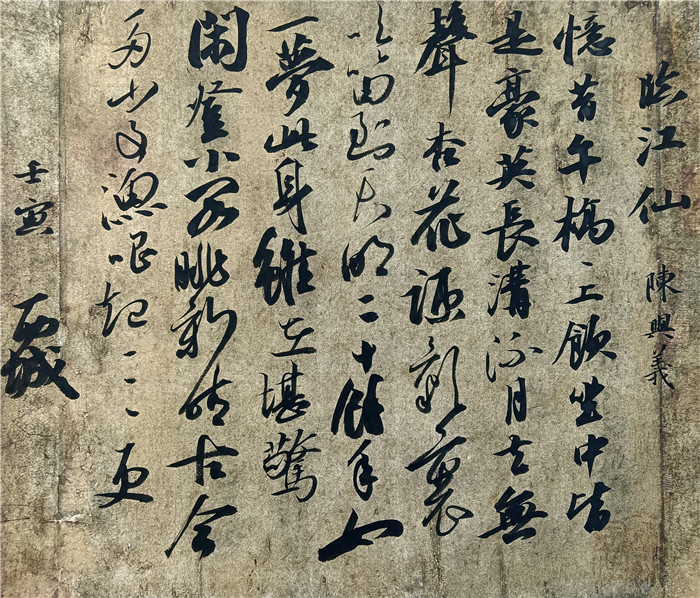 临江仙 陳與義
憶昔午橋〻上飲坐中皆
是豪英長溝流月去無
聲杏花疏影裏
吹笛到天明二十餘年如
一夢此身雖在堪驚
閑登小閣眺新晴古今
多少事漁唱起三更
壬寅